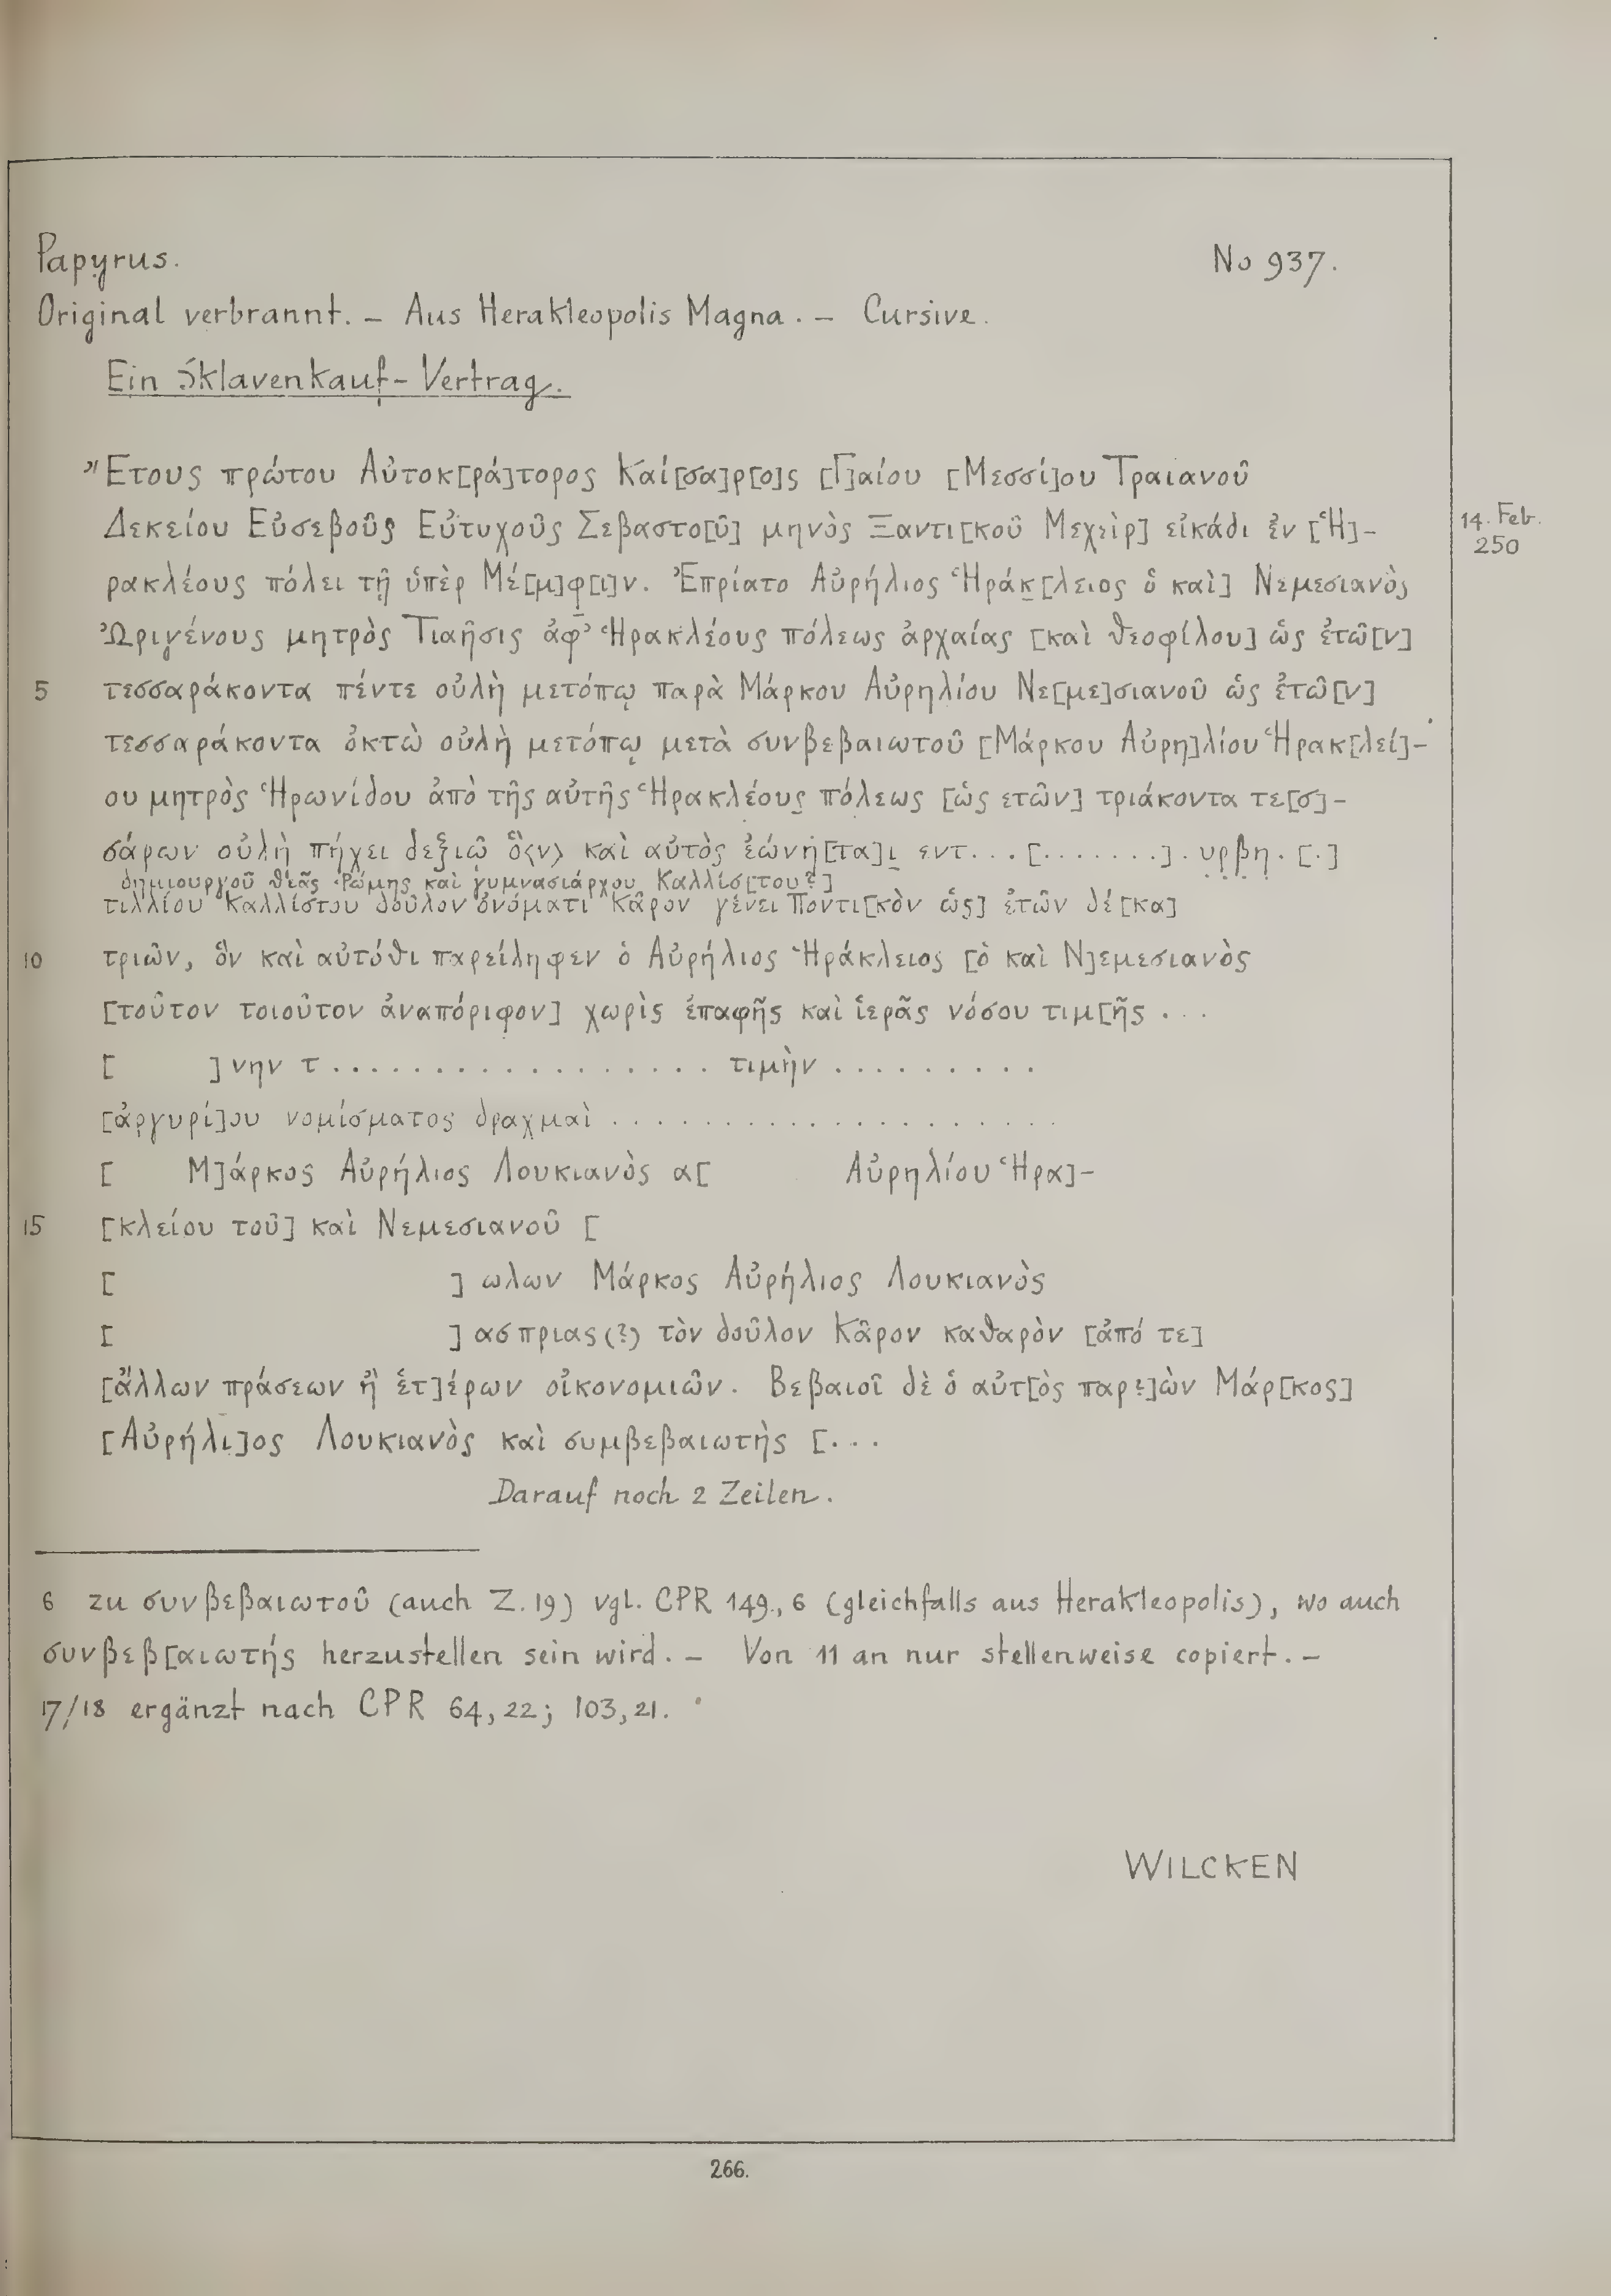 Papyrus. No 937.
Original verbrannt. – Aus Herakleopolis Magna. – Cursive.
Ein Sklavenkauf-Vertrag.
Ἔτους πρώτου Αὐτοκ[ρά]τορος Καί[σα]ρ[ο]ς [Γ]αίου [Μεσσί]ου Τραιανοῦ
Δεκείου Εὐσεβοῦς Εὐτυχοῦς Σεβαστο[ῦ] μηνὸς Ξαντι[κοῦ Μεχεὶρ] εἰκάδι ἐν [Ἡ]-
14. Feb.
250
ρακλέους πόλει τῇ ὑπὲρ Μέ[μ]φ[ι]ν. Ἐπρίατο Αὐρήλιος Ἡράκ̣[λειος ὁ καὶ] Νεμεσιανὸς
Ὠριγένους μητρὸς Τιαῆσις ἀφ' Ἡρακλέους πόλεως ἀρχαίας [καὶ θεοφίλου] ὡς ἐτῶ[ν]
5 τεσσαράκοντα πέντε οὐλὴ μετόπῳ παρὰ Μάρκου Αὐρηλίου Νε[με]σιανοῦ ὡς ἐτῶ[ν]
τεσσαράκοντα ὀκτὼ οὐλὴ μετόπῳ μετὰ συνβεβαιωτοῦ [Μάρκου Αὐρη]λίου Ἡρακ[λεί]-
ου μητρὸς Ἡρωνίδου ἀπὸ τῆς αὐτῆς Ἡρακλέου̣ς̣ πόλεως [ὡς ετῶν] τριάκοντα τε[σ]-
σάρων οὐλὴ πήχει δεξιῶ ὃ⟨ν⟩ καὶ αὐτὸς ἐώνή[τα]ι̣ εντ...[.......].υ̣ρ̣β̣η̣.[.]
δημιουργοῦ θεᾶς Ῥώμης καὶ γυμνασιάρχου Καλλίσ[του?]
τιλλίου Καλλίστου δοῦλον ὀνόματι Κᾶρον γένει Ποντι[κὸν ὡς] ἐτῶν δέ[κα]
10 τριῶν, ὃν καὶ αὐτόθι παρείληφεν ὁ Αὐρήλιος Ἡράκλειος [ὁ καὶ Ν]εμεσιανὸς
[τοῦτον τοιοῦτον ἀναπόριφον] χωρὶς ἐπαφῆς καὶ ἱερᾶς νόσου τιμ[ῆς ...
[ ]νην τ............... τιμὴν .........
[ἀργυρί]ου νομίσματος δραχμαὶ ..................
[ Μ]άρκος Αὐρήλιος Λουκιανὸς α[ Αὐρηλίου Ἡρα]-
15 [κλείου τοῦ] καὶ Νεμεσιανοῦ [
[ ] ωλων Μάρκος Αὐρήλιος Λουκιανὸς
[ ] ασπριας(?) τὸν δοῦλον Κᾶρον καθαρὸν [ἀπό τε]
[ἄλλων πράσεων ἢ ἑτ]έρων οἰκονομιῶν. Βεβαιοῖ δὲ ὁ αὐτ[ὸς παρ?]ὼν Μάρ[κος]
[Αὐρήλι]ος Λουκιανὸς καὶ συμβεβαιωτὴς [...
Darauf noch 2 Zeilen.
6 zu συνβεβαιωτοῦ (auch Z. 19) vgl. CPR 149, 6 (gleichfalls aus Herakleopolis), wo auch
συνβεβ[αιωτής herzustellen sein wird. – Von 11 an nur stellenweise copiert. –
17/18 ergänzt nach CPR 64, 22; 103, 21.
WILCKEN
266.